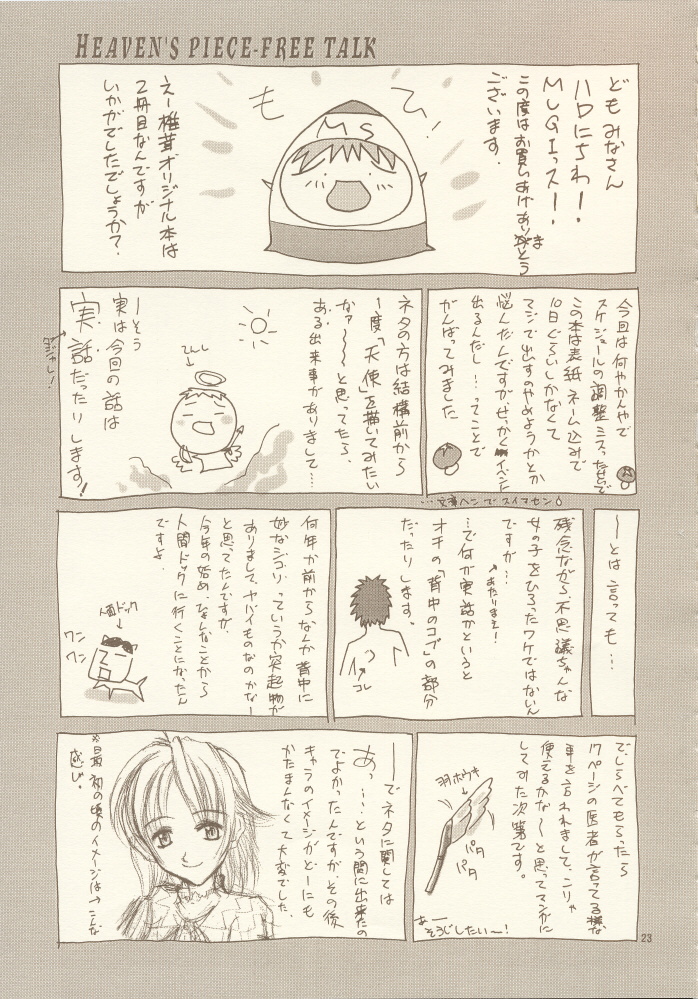 HEAVEN'S PIECE-FREE TALK
どもみなさん
ハロにちわ!
MUGIっス!
この度はお買いあげありがとう
ま
ございます。
ひ!
も
MS
えー椎茸オリジナル本は
2冊目なんですが
いかがでしたでしょうか?
今回は何やかんやで
スケジュールの調整ミスったせいで
この本は表紙、ネーム込みで
10日ぐらいしかなくて
マジで出すのやめようかとか
悩んだんですがせっかくイベント
出るんだし…ってことで
がんばってみました
ネタの方は結構前から
1度「天使」を描いてみたい
なァ〜〜と思ってたら、
ある出来事がありまして…
てんし
ーそう
実は今回の話は
実話だったりします!
ダジャレ!
…文章ヘンでスイマセン
〜とは言っても…
残念ながら、不思議ちゃんな
女の子をひろったワケではないん
ですが…
あたりまえ!
…で何が実話かというと
オチの「背中のコブ」の部分
だったりします。
コレ
何年か前からなんか背中に
妙なシコリっていうか突起物が
ありまして、ヤバイものなのかなー
と思ってたんですが、
今年の始め、ひょんなことから
人間ドックに行くことになったん
ですよ。
人面ドック
ワン
ワン
で、しらべてもらったら
17ページの医者が言ってる様な
事を言われまして、こりゃ
使えるかな〜と思ってマンガに
してみた次第です。
羽ホウキ
パタ
パタ
あー
そうじしたい〜!
ーでネタに関しては
あっ…という間に出来たの
でよかったんですが、その後
キャラのイメージがどーにも
かたまんなくて大変でした。
※最初の頃のイメージは→こんな
感じ。
23